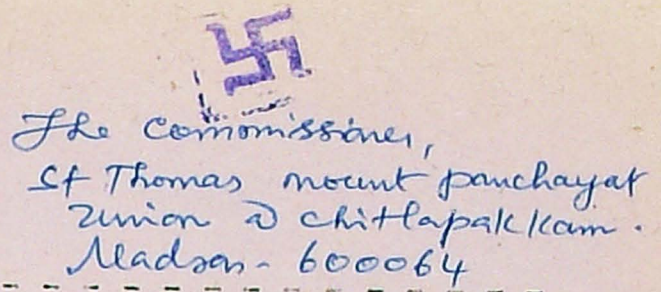 The Commissioner,
St Thomas mount panchayat
Union @ chitlapakkam.
Madras - 600064